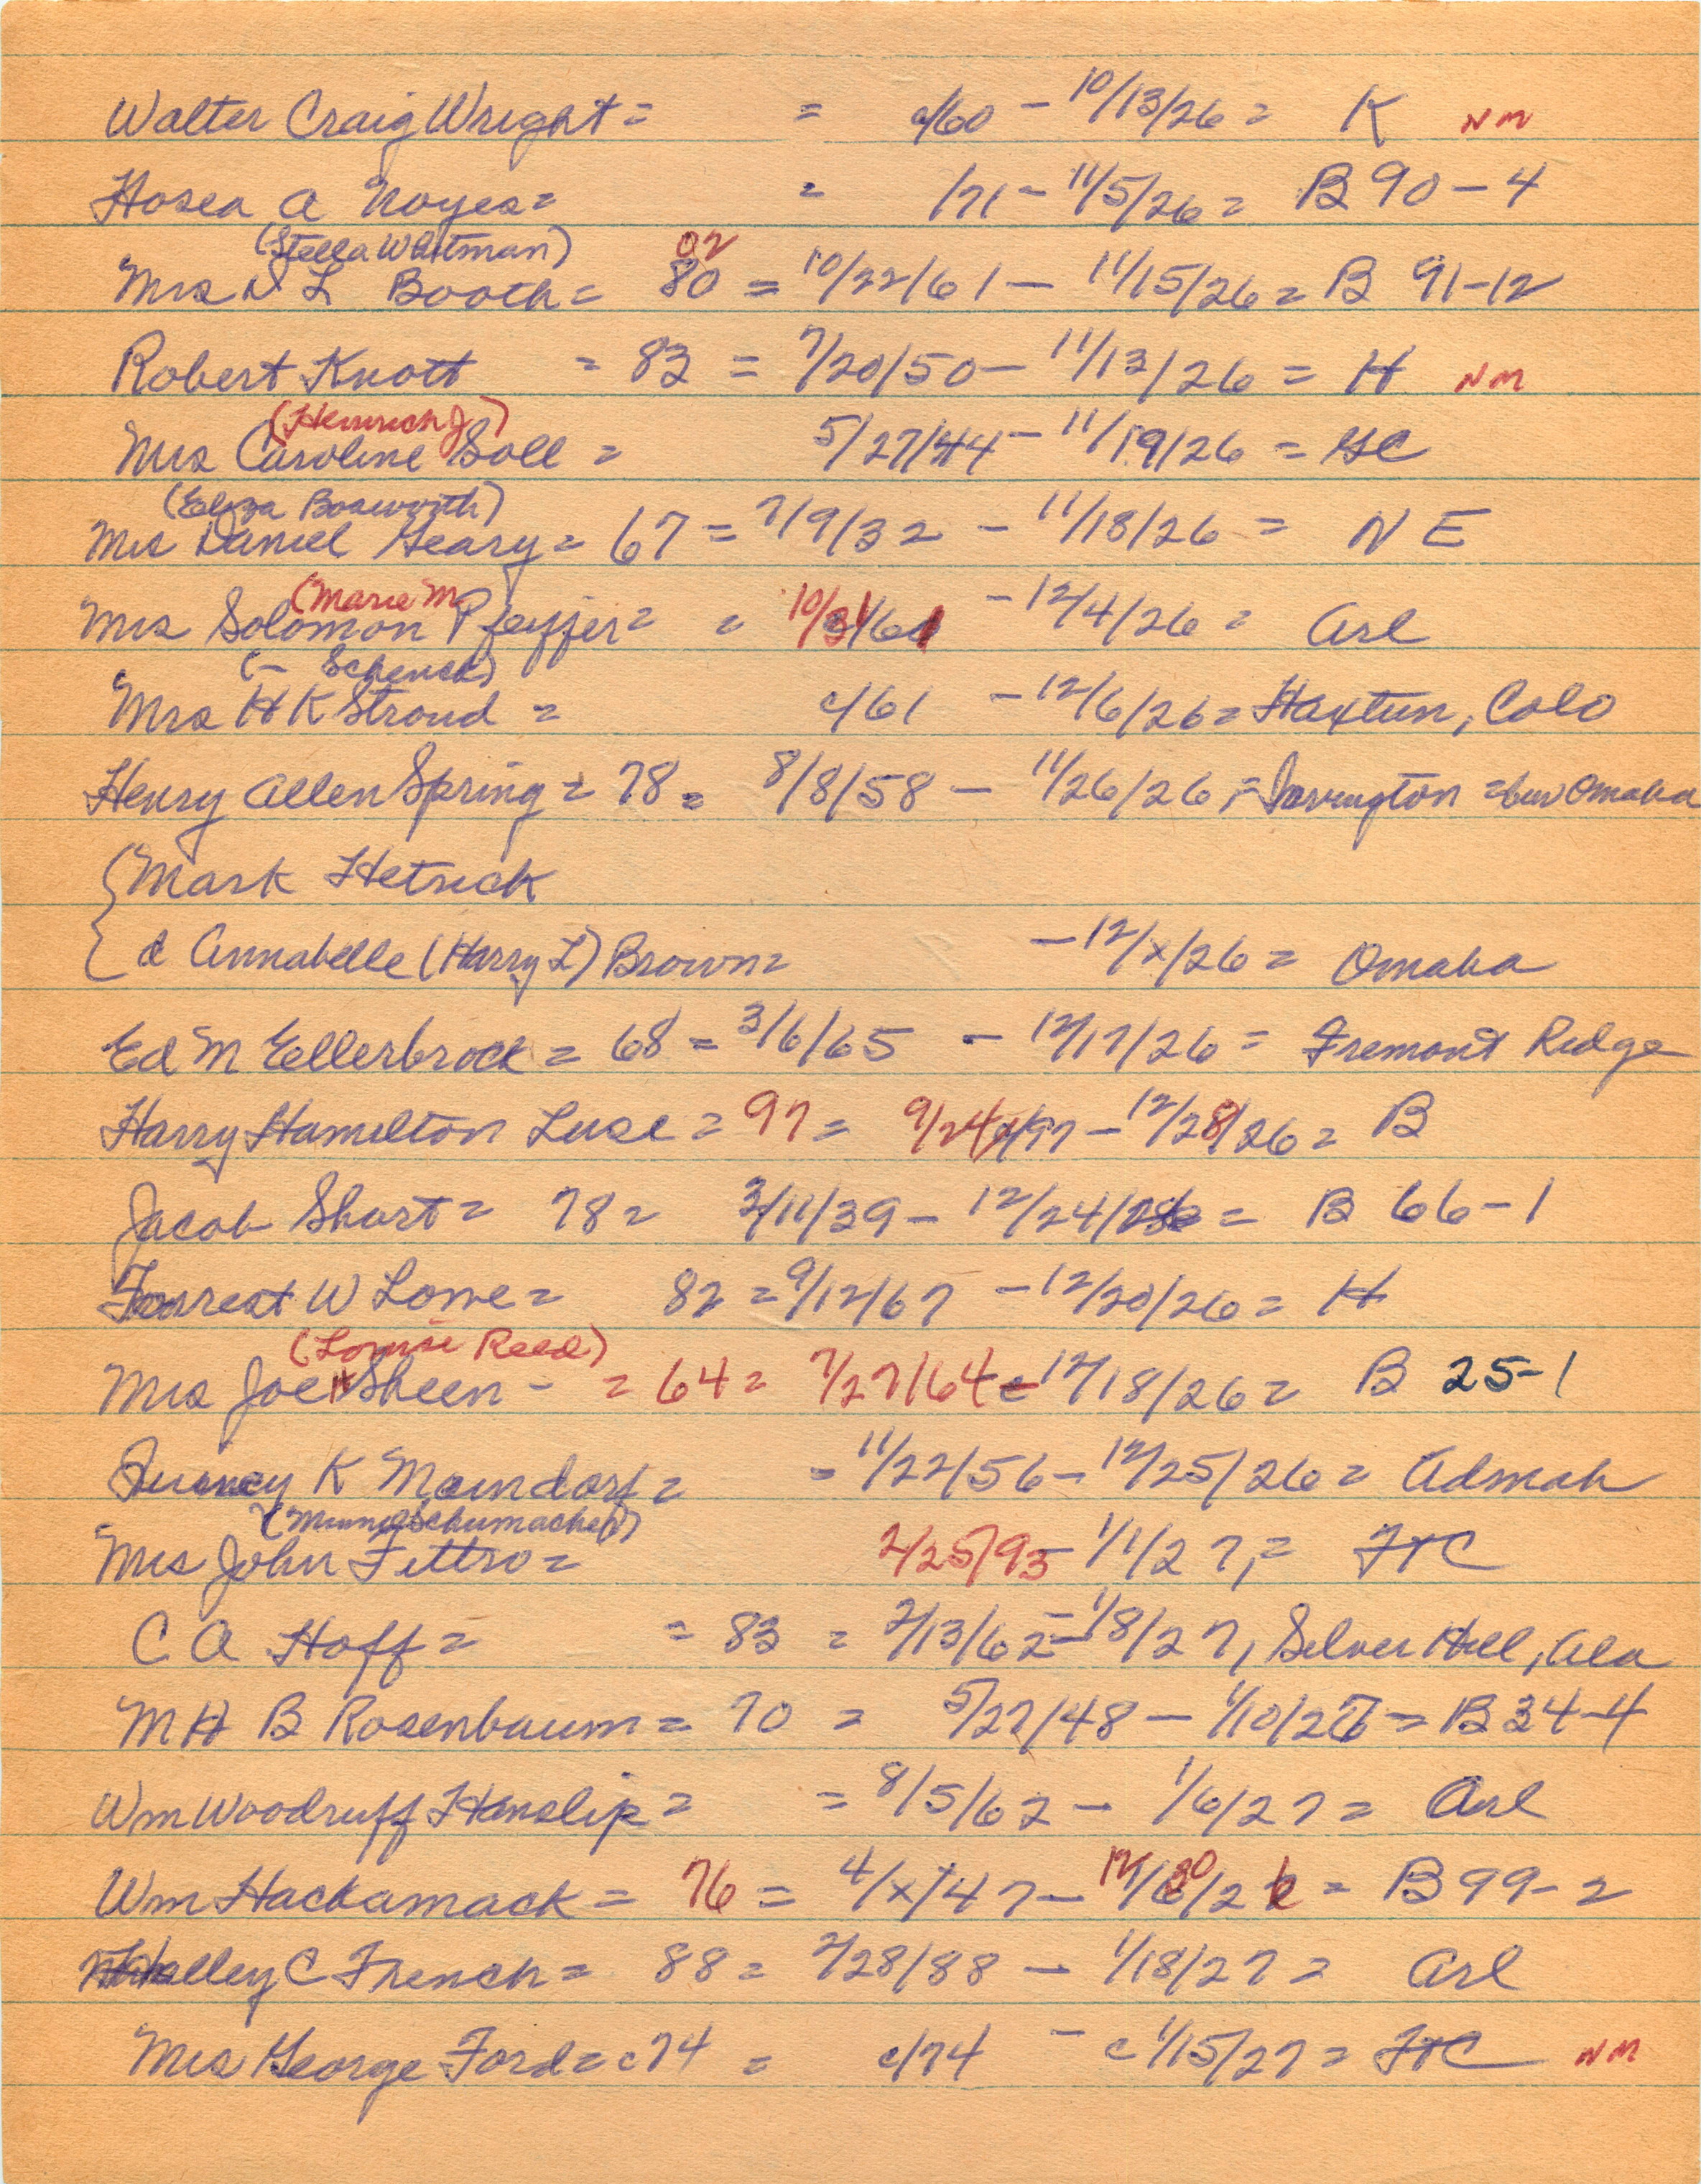 Walter Craig Wright = = c/60 - 10/13/26 = K NM
Hosea A Noyes = = /71 - 11/5/26 = B 90-4
(Stella Whitman) 02
Mrs L Booth = 80 = 10/22/61 - 11/15/26 = B 91-12
Robert Knott = 83 = 7/20/50 - 11/13/26 = H NM
(Heinrich J)
Mrs Caroline Soll = 5/27/44 - 11/19/26 = GC
(Eliza Bosworth)
Mrs Daniel Geary = 67 = 7/9/32 - 11/18/26 = N E
(Marie M
Mrs Solomon Pfeiffer = = 10/31/61 - 12/4/26 = Arl
(- Schenck)
Mrs H K Stroud = c/61 - 12/6/26 = Haxtun, Colo
Henry Allen Spring = 78 = 8/8/58 - 11/26/26, = Irvington = bur Omaha
{ Mark Hetrick
{ d Annabelle (Harry L) Brown = - 12/x/26 = Omaha
Ed M Eellerbrock = 68 = 3/6/65 - 12/17/26 = Fremont Ridge
Harry Hamilton Luse = 97 = 9/24/97 - 12/28/26 = B
Jacob Short = 78 = 3/11/39 - 12/24/26 = B 66-1
Forrest W Lowe = 82 = 9/12/67 - 12/20/26 = H
(Louise Reed)
Mrs Joe H Sheen - = 64 = 7/27/64 - 12/18/26 = B 25-1
K Morndorf = = 11/22/56 - 12/25/26 = Admah
(Minnie Schumacher)
Mrs John Fittro = 2/25/95 - 1/1/27, = FtC
C A Hoff = = 83 = 2/13/62 = 1/8/27, Silver Hill, Ala
M H B Rosenbaum = 70 = 5/27/48 - 1/10/27 = B 34-4
Wm Woodruff Hanslip = = 8/5/62 - 1/6/27 = Arl
Wm Hackamack = 76 = 4/x/47 - 12/30/26 = B 99-2
Halley C French = 88 = 2/28/88 - 1/18/27 = Arl
Mrs George Ford = c74 = c/74 - c 1/15/27 = FtC NM